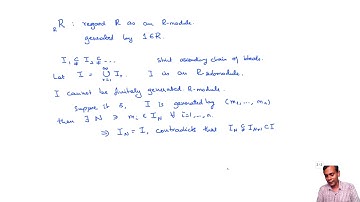 RR : regard R as an R-module.
generated by 1∈R.
I₁ ⊊ I₂ ⊊ ... strict ascending chain of ideals.
Let I = ⋃_{r=1}^∞ Iᵣ. I is an R-submodule.
I cannot be finitely generated R-module.
Suppose it is, I is generated by (m₁, ..., mₙ)
then ∃ N ∋ mᵢ ∈ I_N ∀ i=1,...,n.
⇒ I_N = I, contradicts that I_N ⊊ I_{N+1} ⊂ I